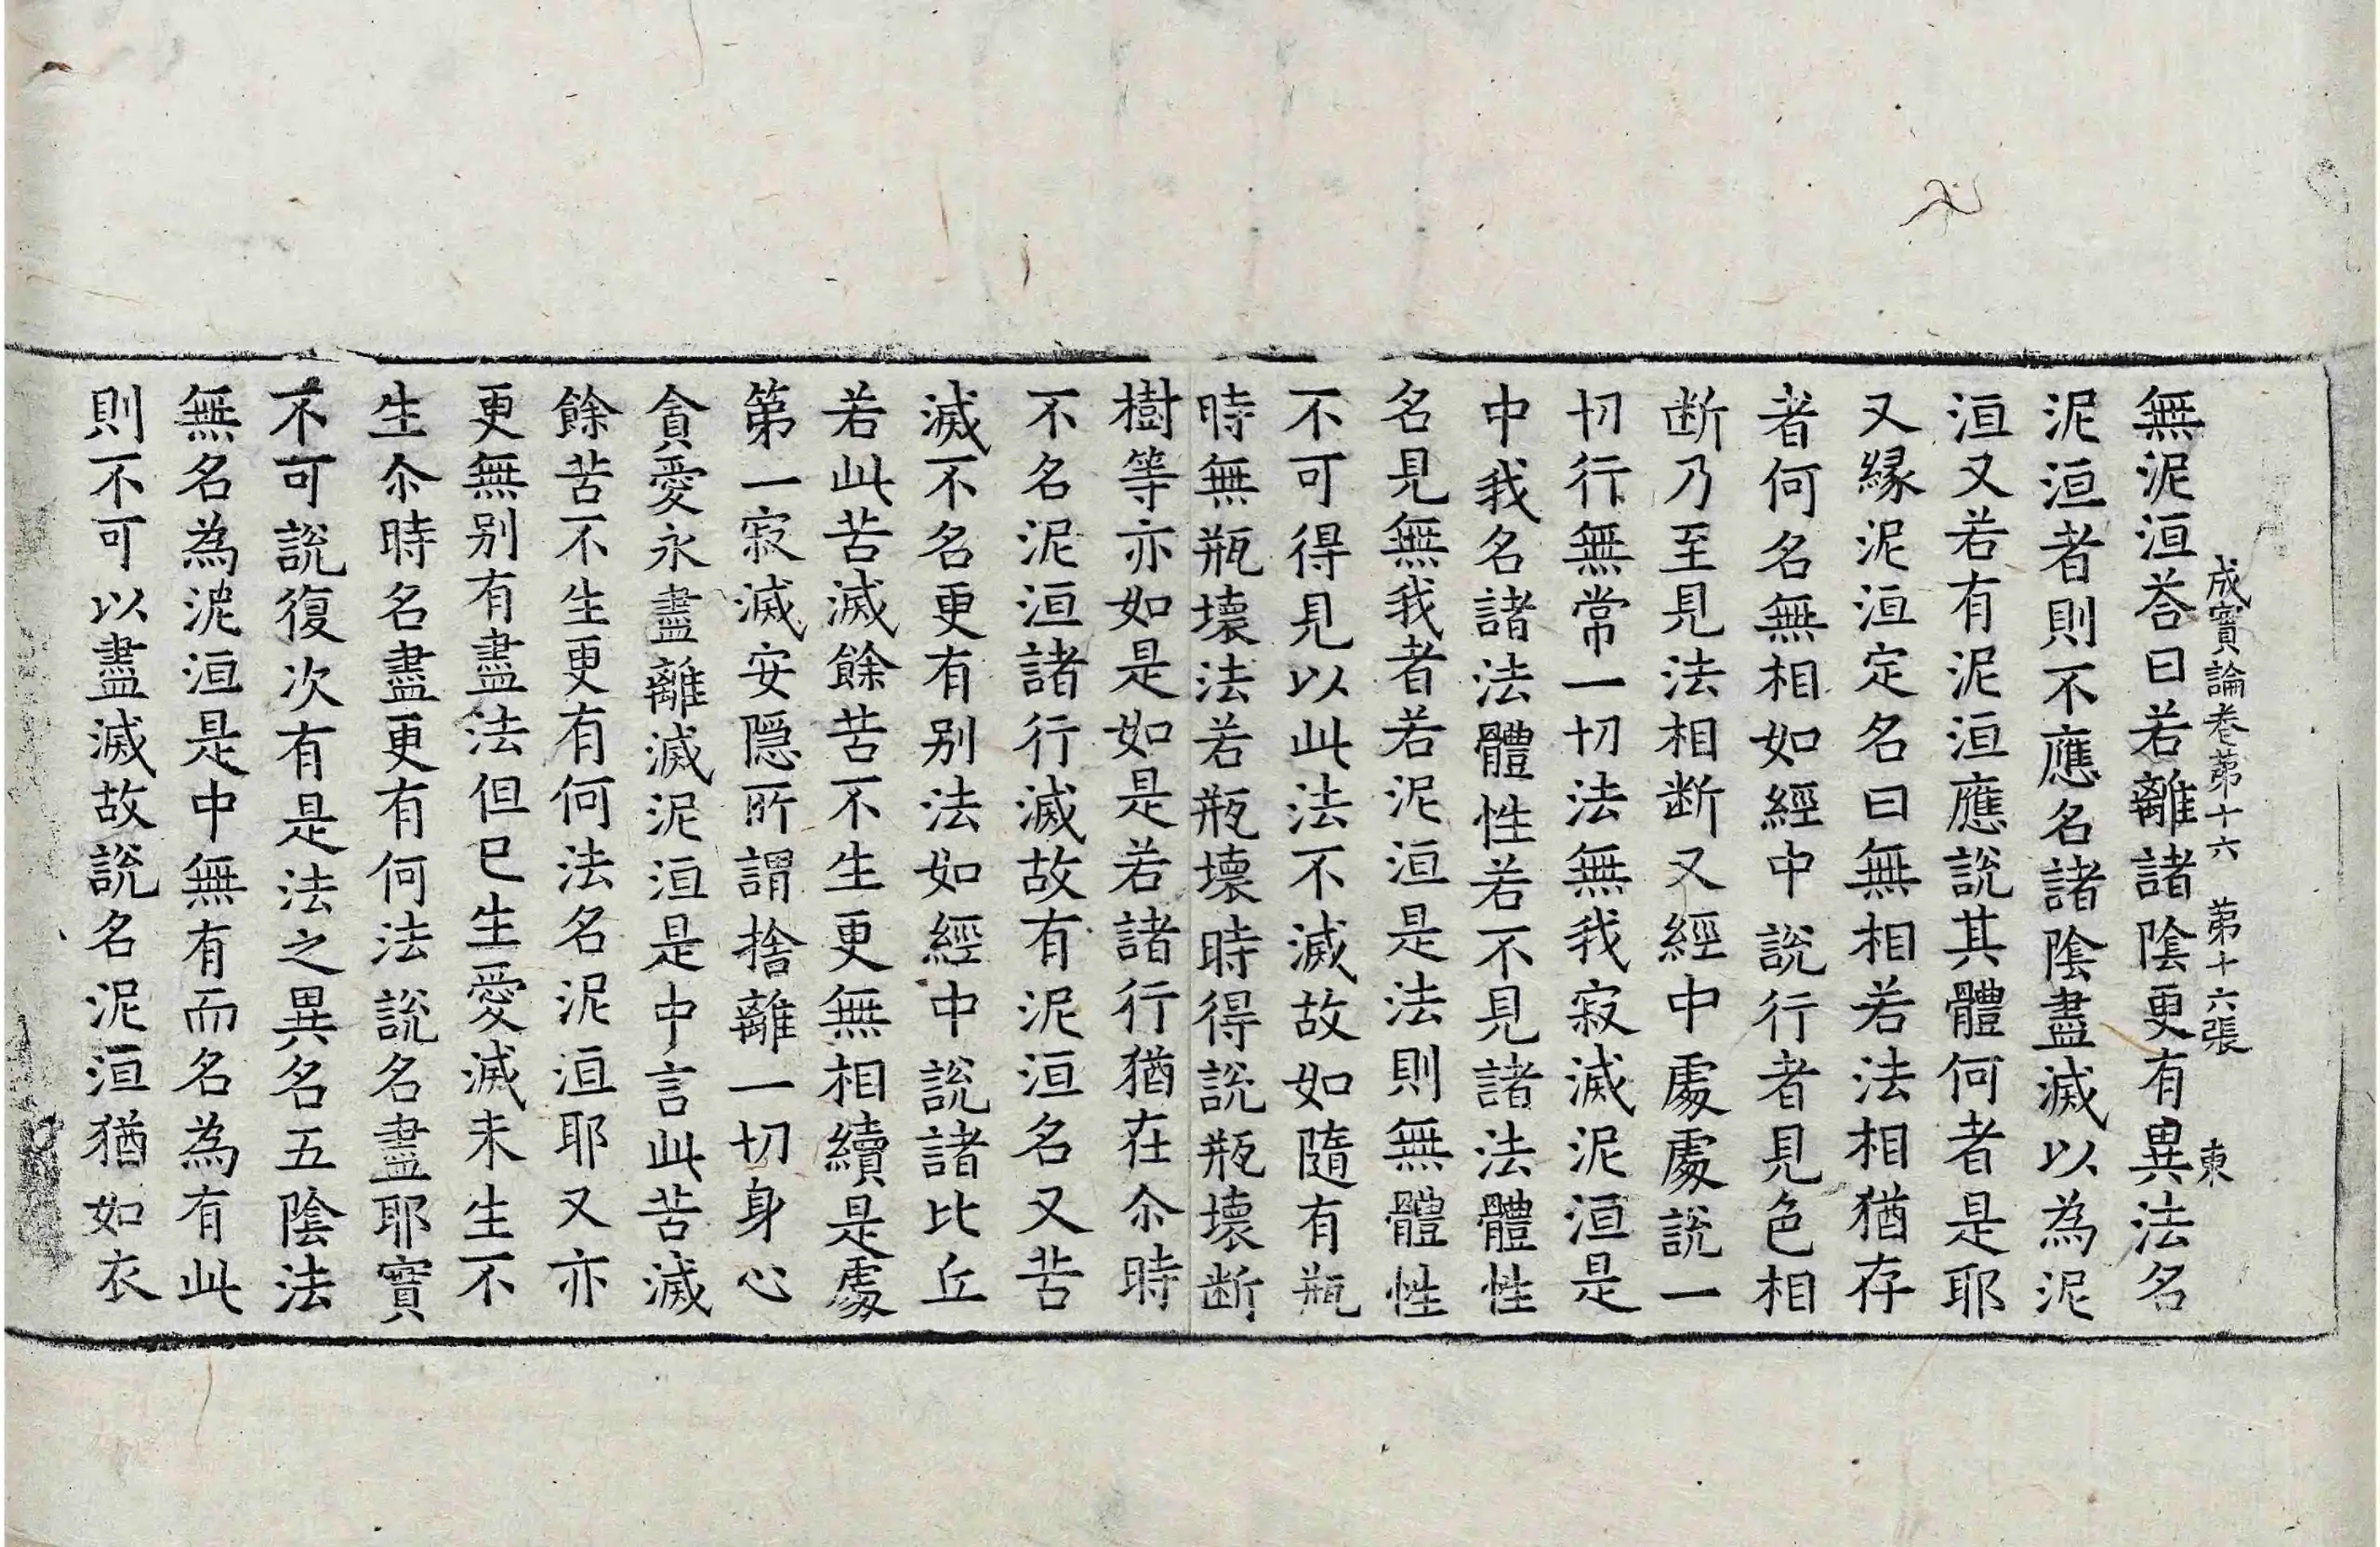 成實論卷第十六 第十六張 東
無泥洹荅曰若離諸陰更有異法名
泥洹者則不應名諸陰盡滅以為泥
洹又若有泥洹應說其體何者是耶
又縁泥洹定名曰無相若法相猶存
者何名無相如經中說行者見色相
断乃至見法相断又經中處處說一
切行無常一切法無我寂滅泥洹是
中我名諸法體性若不見諸法體性
名見無我者若泥洹是法則無體性
不可得見以此法不滅故如隨有瓶
時無瓶壊法若瓶壊時得說瓶壊断
樹等亦如是如是若諸行猶在尒時
不名泥洹諸行滅故有泥洹名又苦
滅不名更有别法如經中說諸比丘
若此苦滅餘苦不生更無相續是處
第一寂滅安隠所謂捨離一切身心
貪愛永盡離滅泥洹是中言此苦滅
餘苦不生更有何法名泥洹耶又亦
更無别有盡法但已生愛滅未生不
生尒時名盡更有何法說名盡耶實
不可說復次有是法之異名五陰法
無名為泥洹是中無有而名為有此
則不可以盡滅故說名泥洹猶如衣